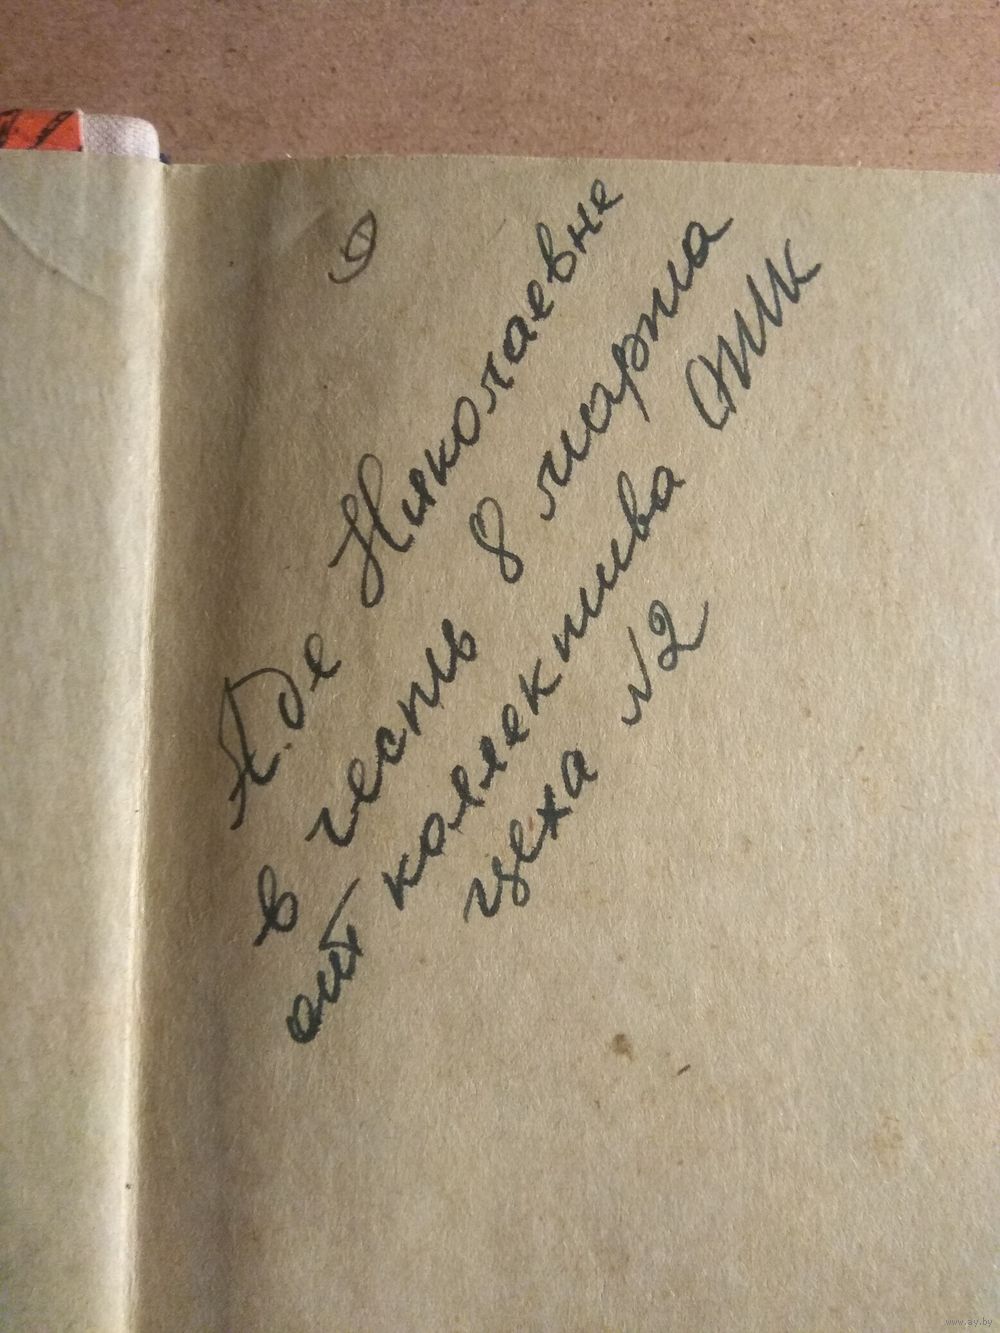 Аде Николаевне
в честь 8 марта
от коллектива ОТК
цеха №2
www.ay.by